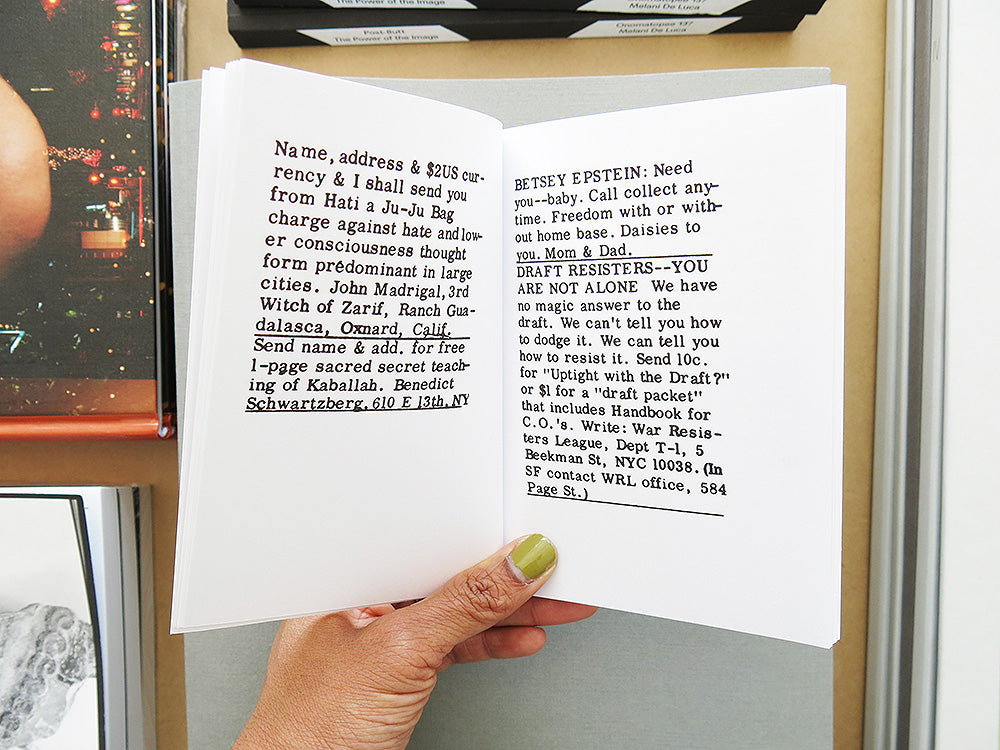 Post-Butt
The Power of the Image
Onomatopee 137
Melani De Luca
Name, address & $2US cur-
rency & I shall send you
from Hati a Ju-Ju Bag
charge against hate and low-
er consciousness thought
form predominant in large
cities. John Madrigal, 3rd
Witch of Zarif, Ranch Gua-
dalasca, Oxnard, Calif.
Send name & add. for free
1-page sacred secret teach-
ing of Kaballah. Benedict
Schwartzberg, 610 E 13th, NY
BETSEY EPSTEIN: Need
you--baby. Call collect any-
time. Freedom with or with-
out home base. Daisies to
you. Mom & Dad.
DRAFT RESISTERS--YOU
ARE NOT ALONE We have
no magic answer to the
draft. We can't tell you how
to dodge it. We can tell you
how to resist it. Send 10c.
for "Uptight with the Draft?"
or $1 for a "draft packet"
that includes Handbook for
C.O.'s. Write: War Resis-
ters League, Dept T-1, 5
Beekman St, NYC 10038. (In
SF contact WRL office, 584
Page St.)